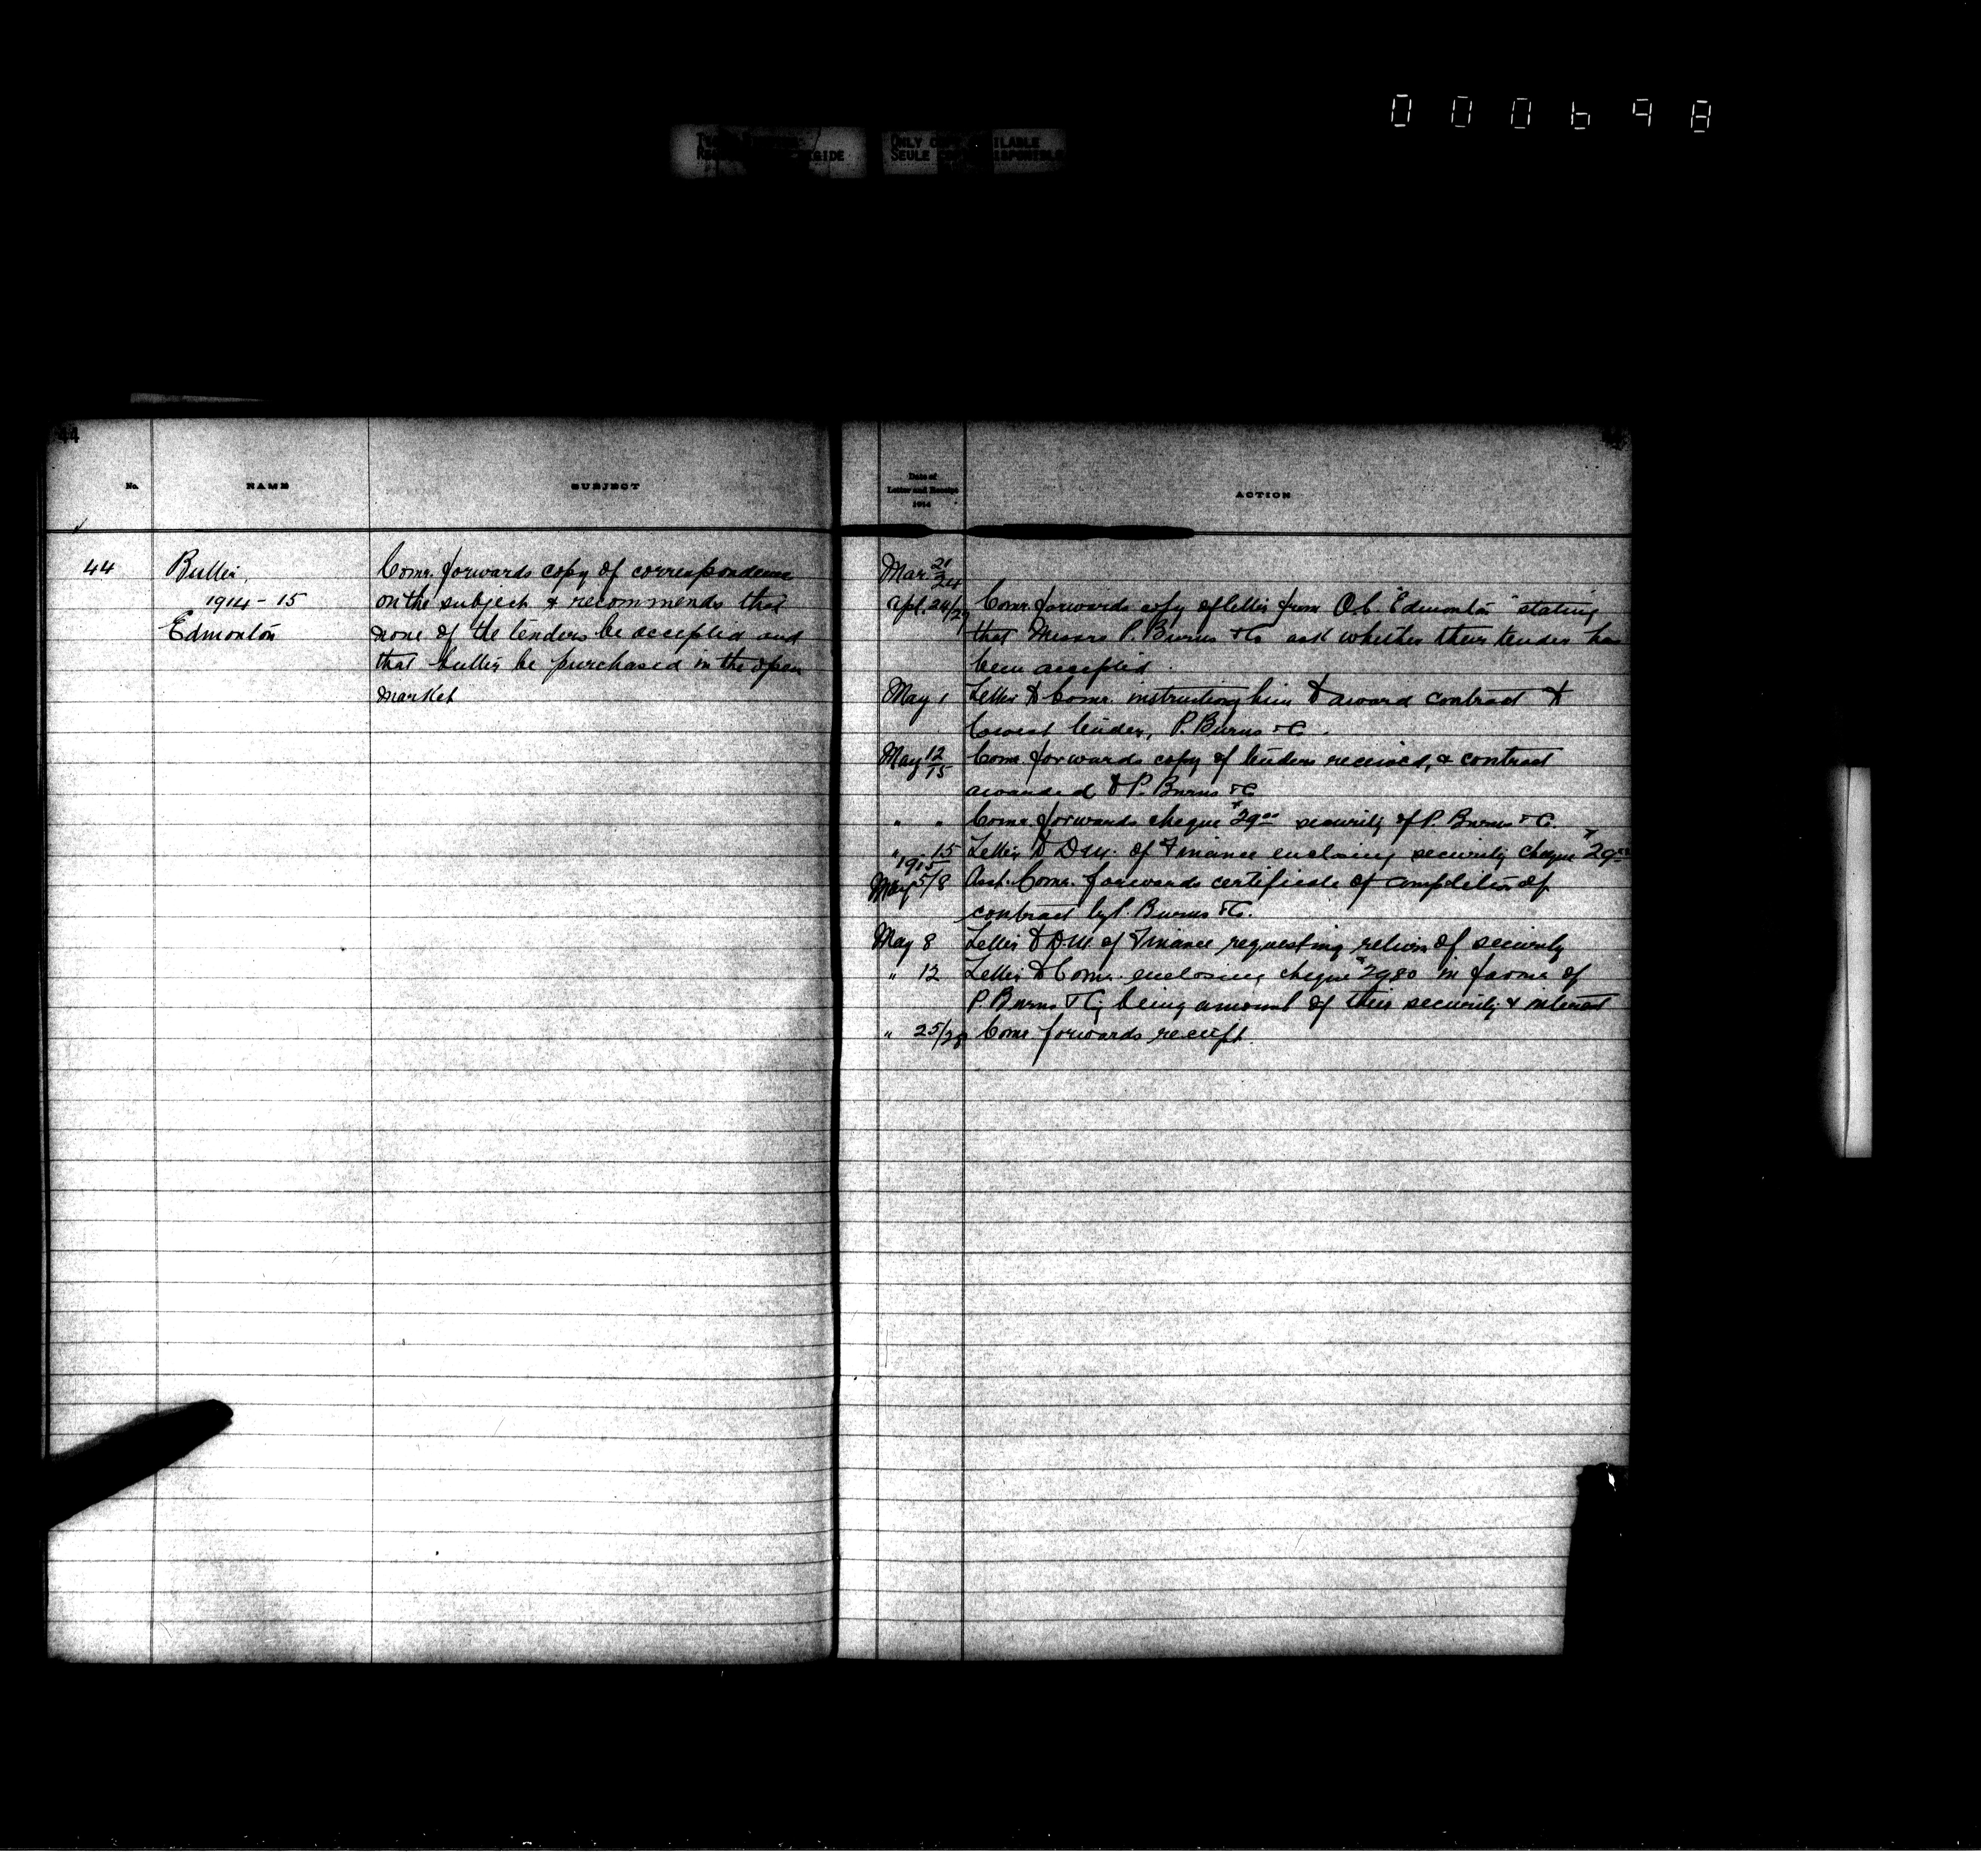 000698
ONLY COPY AVAILABLE
SEULE
44
No.
NAME
SUBJECT
44
Butter
1914-15
Edmonton
Comr. forwards copy of correspondence
on the subject & recommends that
none of the tenders be accepted and
that butter be purchased in the open
market
Date of
Letter and Receipt
1914
ACTION
Mar 21/24
Apl. 24/29 Comr. forwards copy of letter from O.C. "Edmonton" stating
that Messrs P. Burns & Co ask whether their tender has
been accepted.
May 1 Letter to Comr. instructing him to award contract to
lowest tender, P. Burns & Co.
May 12/15 Comr. forwards copy of tenders received, & contract
awarded to P. Burns & Co
" " Comr. forwards cheque $29.00 security of P. Burns & Co.
" 15 Letter to D.M. of Finance enclosing security cheque $29.00
1915
May 5/8 Asst. Comr. forwards certificate of completion of
contract by P. Burns & Co.
May 8 Letter to D.M. of Finance requesting return of security
" 12 Letter to Comr. enclosing cheque $29.80 in favour of
P. Burns & Co; being amount of their security & interest
" 25/28 Comr. forwards receipt.